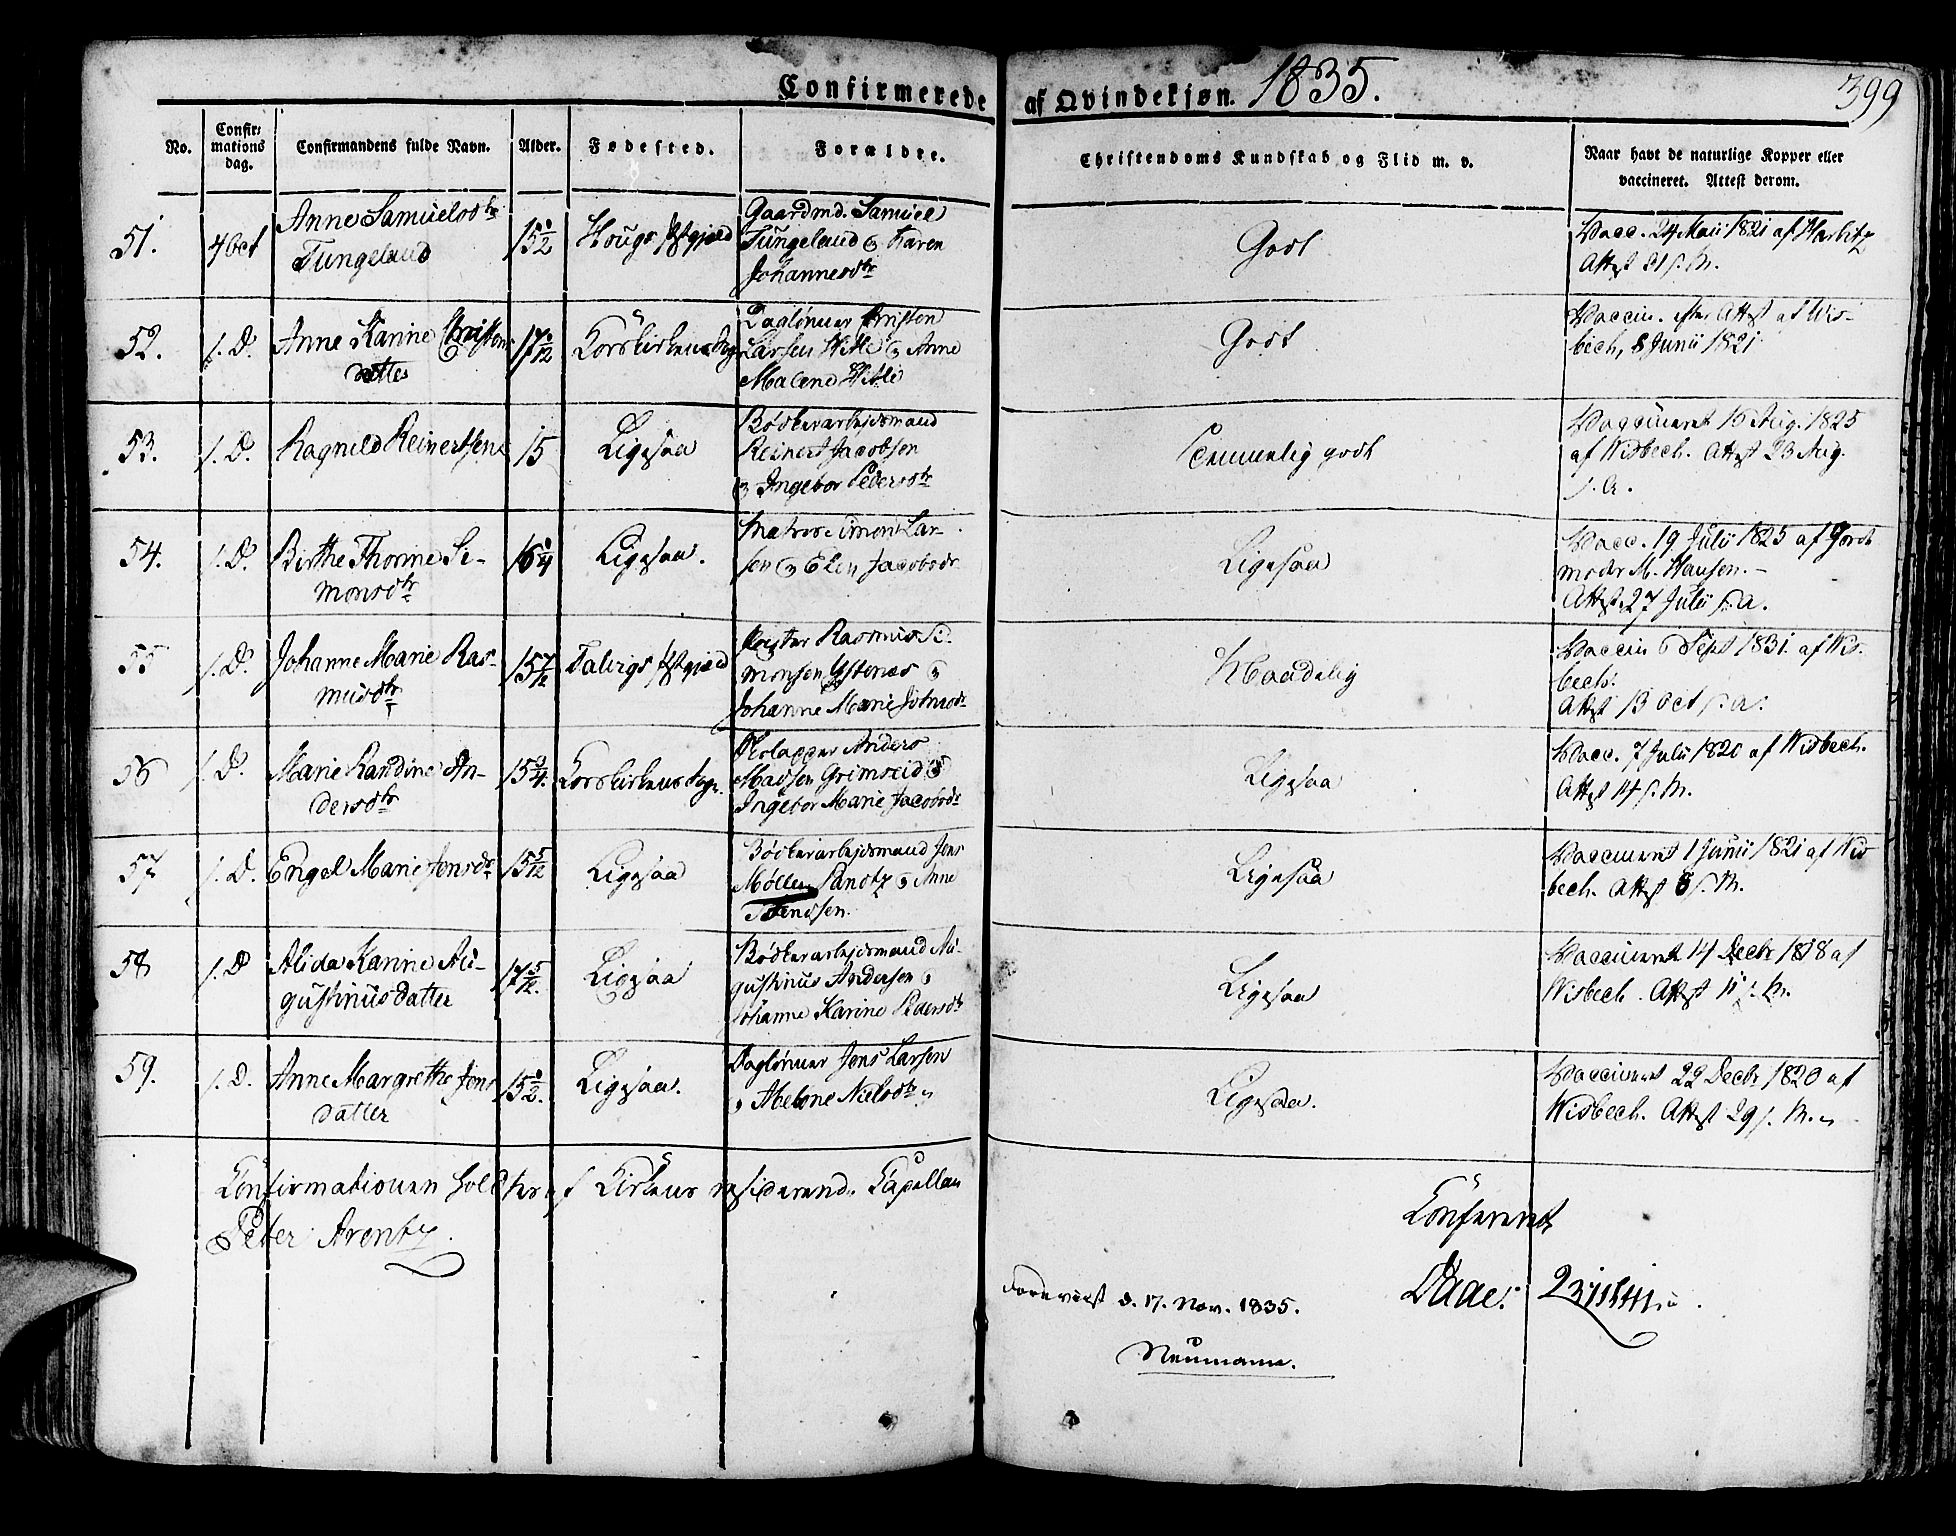 Confirmerede af Qvindekjøn. 1835.
399
No.
Confir-
mations
dag.
Confirmandens fulde Navn.
Alder.
Fødested.
Forældre.
Christendoms Kundskab og Flid m. v.
Naar havt de naturlige Kopper eller
vaccineret. Attest derom.
51.
4 Oct
Anne Samuelsdtr
Tungeland
15 1/2
Hougs Prstgjæld
Gaardmd. Samuel
Tungeland og Karen
Johannesdtr
Godt
Vacc. 24 Maii 1821 af Harbitz
Attest 31 s. M.
52.
s. D.
Anne Karine Christens
datter
Korskirkens Sogn
Daglønner Christen
Larsen Hitle og Anne
Malene Hitle
Godt
Vaccin. efter Attest af Wis-
bech, 8 Junii 1821
53.
s. D.
Ragnild Reinertsen
15
Ligesaa
Bødkerarbejdsmand
Reinert Jacobsen
og Ingebor Pedersdtr
Temmelig godt
Vaccineret 16 Aug. 1825
af Wisbech. Attest 23 Aug.
s. A.
54.
s. D.
Birthe Thorine Si-
monsdtr
16 1/4
Ligesaa.
Matros Simon Lar-
sen og Elen Jacobsdr
Ligesaa
Vacc. 19 Julii 1825 af Jord
moder M. Hansen. –
Attest 27 Julii s. a.
55
s. D.
Johanne Marie Ras-
musdtr
15 7/12
Talvigs Prstgjæld
Rasmus Si-
monsen Ystenæs og
Johanne Marie Johnsdr
Maadelig
Vaccin 6 Sept 1831. af Wis-
bech.
Attest 13 Oct s. a.
56
s. D.
Marie Randine An-
dersdtr
15 3/4.
Korskirkens Sogn.
Anders
Madsen Grimseid og
Ingebor Marie Jacobsdr
Ligesaa
Vacc. 7 Julii 1820 af Wisbech.
Attest 14 s. M.
57
s. D.
Engel Marie Jensdr
15 5/12
Ligesaa
Bødkerarbejdsmand Jens
Møller og Anne
Ligesaa
Vaccineret 1 Junii 1821 af Wis
bech. Attest 8 s. M.
58
s. D
Alida Karine Au-
gustinusdatter
17 5/12.
Ligesaa
Bødkerarbejdsmand Au-
gustinus Andersen og
Johanne Karine Pedersdtr
Ligesaa
Vaccineret 4 Decbr 1818 af
Wisbech. Attest 11 s. M.
59.
s. D.
Anne Margrethe Jens
datter
15 1/2.
Ligesaa.
Daglønner Jens Larsen
og Abelone Nielsdtr
Ligesaa.
Vaccineret 22 Decbr 1820 af
Wisbech. Attest 29 s. M.
Confirmationen holdt her af Kirkens residerende Capellan
Peter Arentz.
Confereret
Daae.
Foreviist d. 17. Nov. 1835.
Neumann.